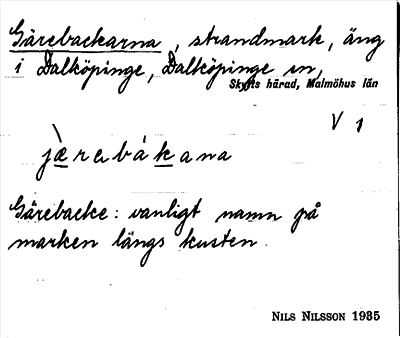 Gärebackarna, strandmark, äng
i Dalköpinge, Dalköpinge sn,
Skytts härad, Malmöhus län
V 1
jæ̀rebákana
Gärebacke: vanligt namn på
marken längs kusten.
NILS NILSSON 1935